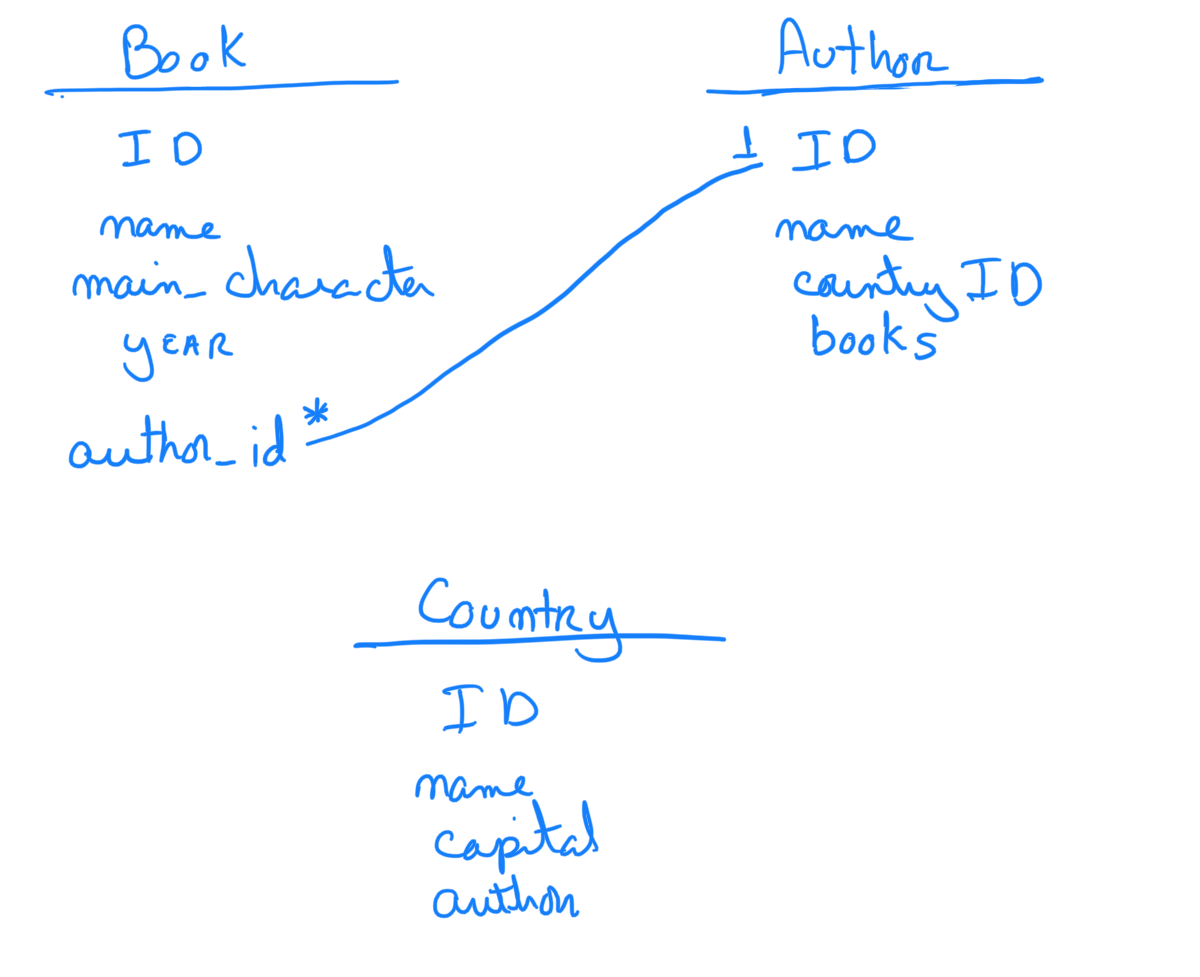 Book
ID
name
main_character
YEAR
author_id *
Author
1 ID
name
country ID
books
Country
ID
name
capital
author